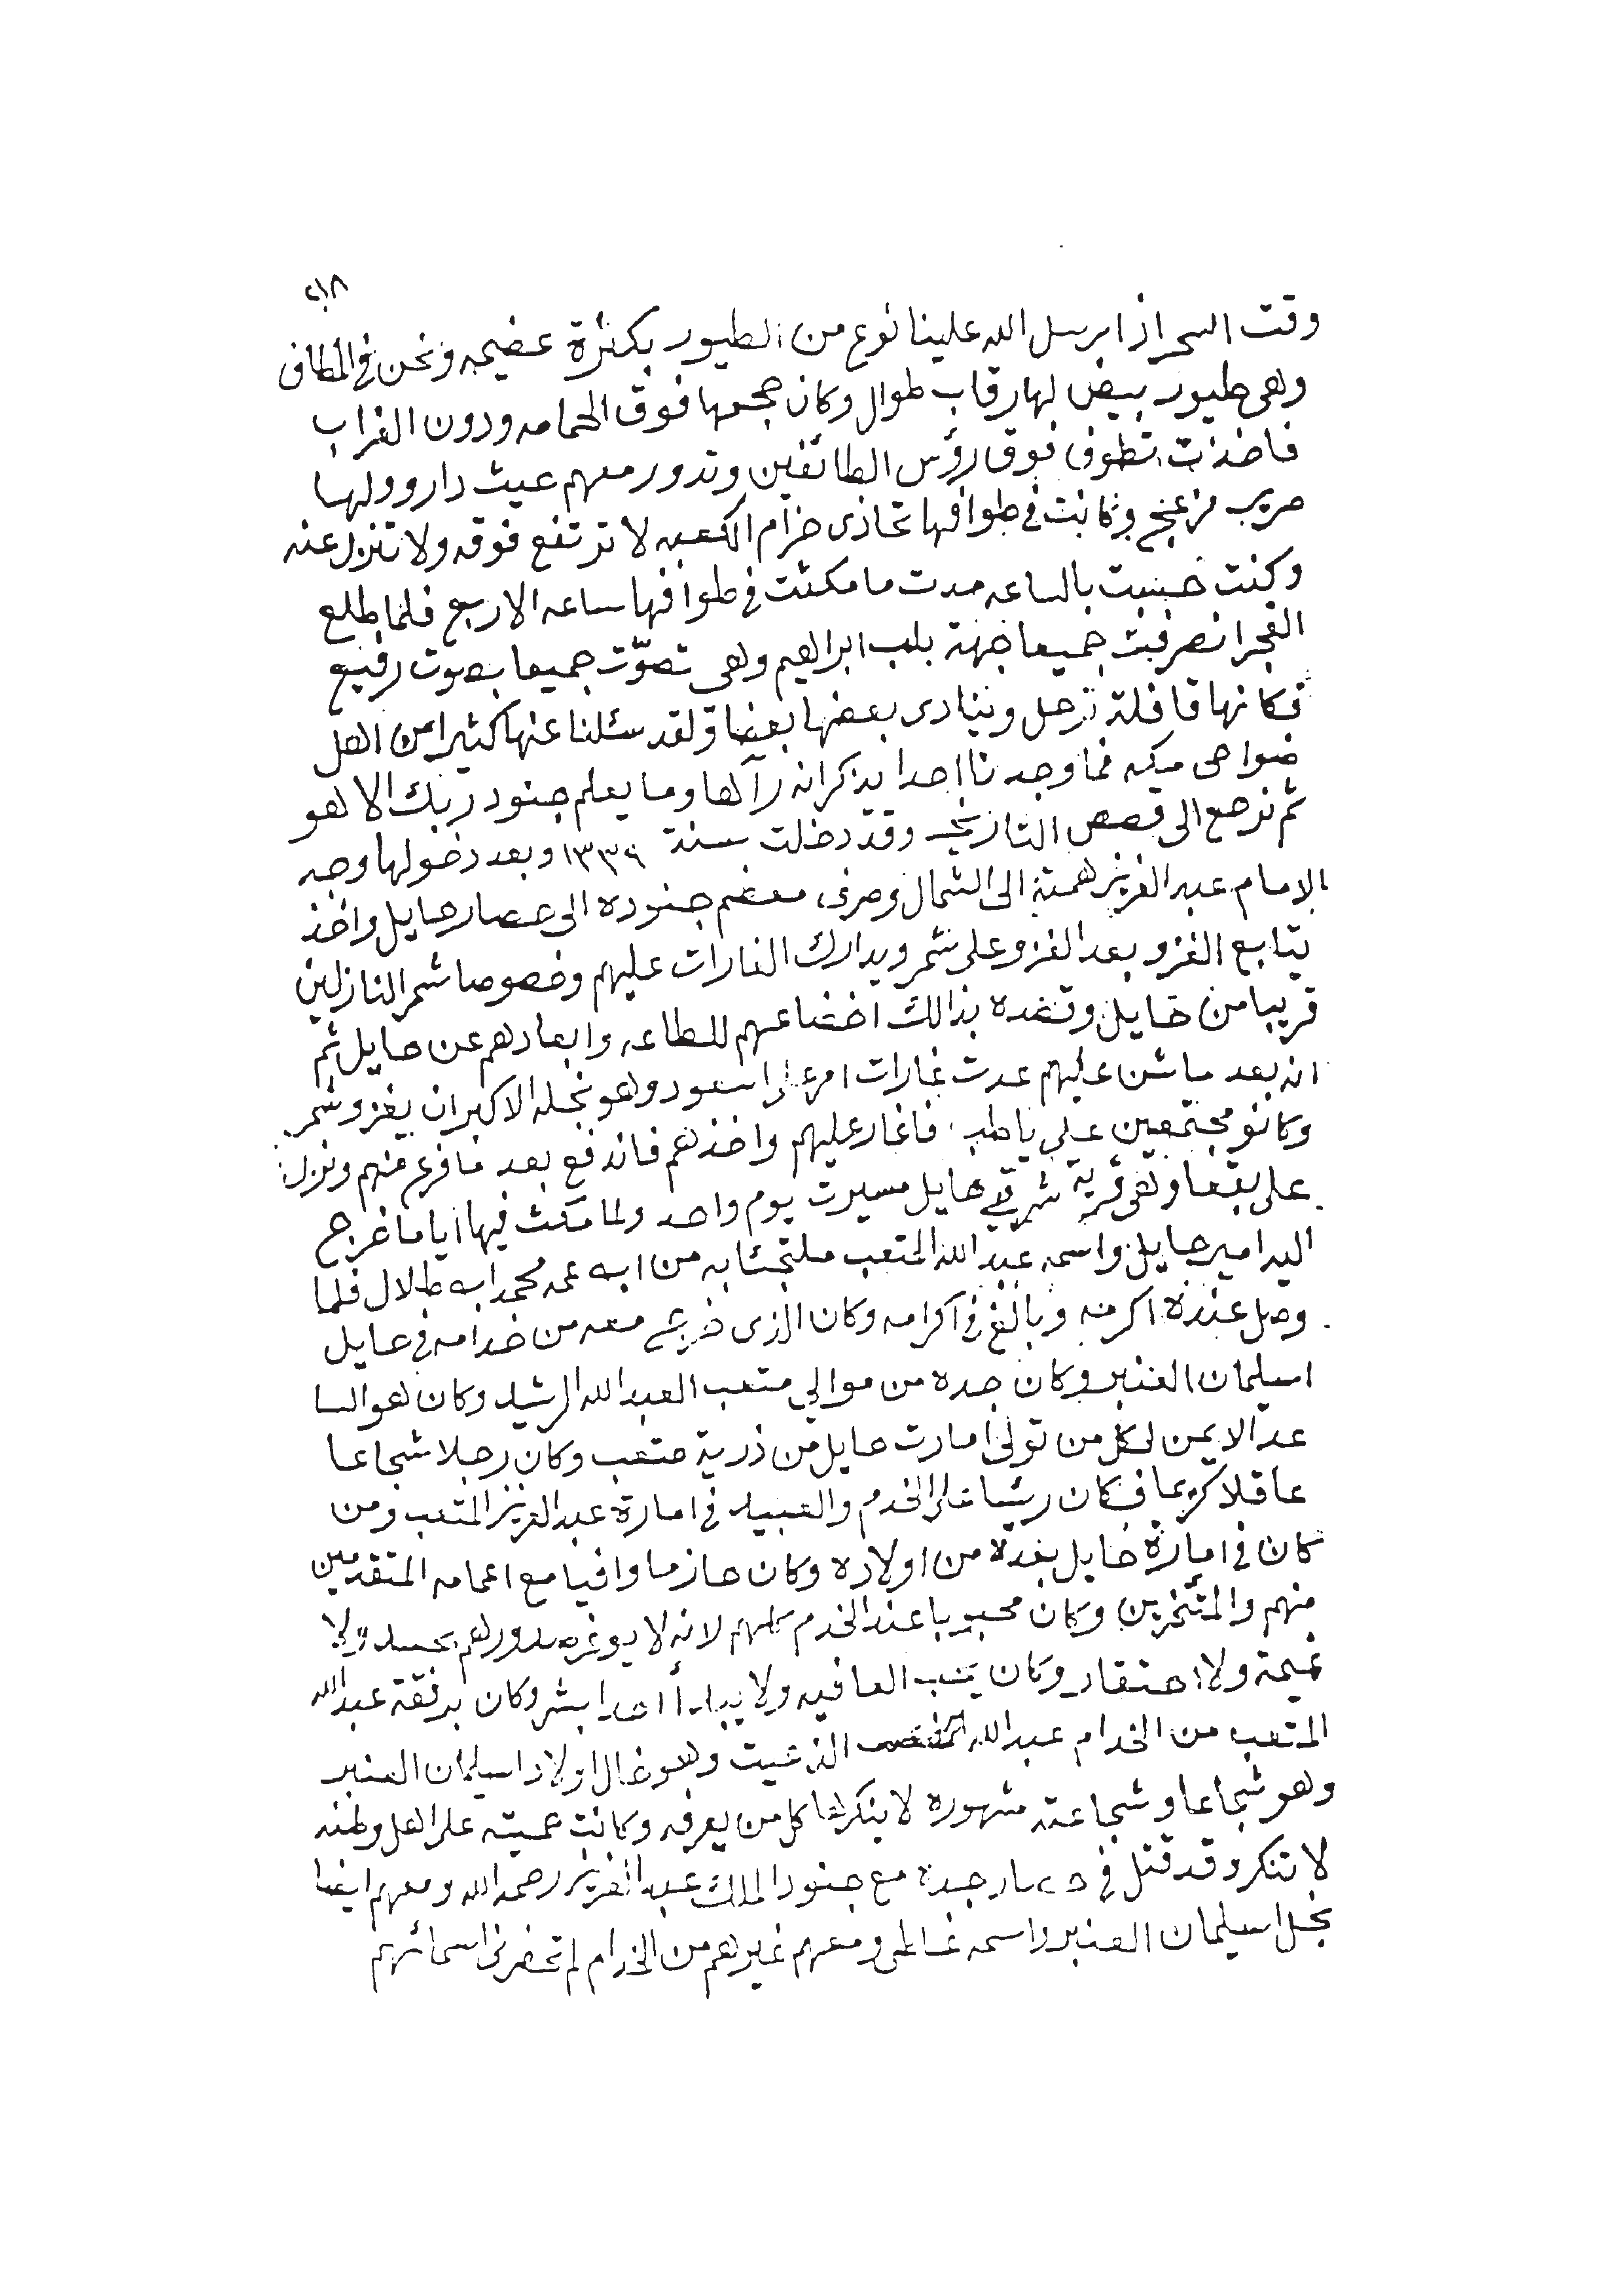 ٢١٨
وقت السحر اذا برسل الله علينا نوع من الطيور بكثرة عضيمه ونحن في المطاف
وهى طيور بيض لها رقاب طوال وكان حجمها فوق الحمامه ودون الغراب
فاخذت تطوف فوق رؤس الطائفين وتدور معهم حيث دارو ولها
مزعج وكانت في طوافها تحاذى حزام الكعبه لا ترتفع فوقه ولا تنزل عنه
وكنت حسبت بالساعه مدت ما مكثت في طوافها ساعه الا ربع فلما طلع
الفجر انصرفت جميعا جهة باب ابراهيم وهى تصوّت جميعا بصوت رفيع
فكانها قافلة ترحل وينادى بعضها بعضا ولقد سئلنا عنها كثيرا من اهل
ضواحى مكه فما وجدنا احدا يذكر انه رآها وما يعلم جنود ربك الا هو
ثم نرجع الى قصص التاريخ وقد دخلت سنة ١٣٣٩ وبعد دخولها وجه
الامام عبد العزيز همته الى الشمال وصرف معضم جنوده الى حصار حايل واخذ
يتابع الغزو بعد الغزو على شمر ويدارك الغارات عليهم وخصوصا شمر النازلين
قريبا من حايل وقصده بذالك اخضاعهم للطاعه وابعادهم عن حايل ثم
انه بعد ما شن عليهم عدت غارات امر على سعود وهو نجله الاكبر ان يغزو شمر
وكانو مجتمعين على ياطب فاغار عليهم واخذهم فاندفع بعد ما فرغ منهم ونزل
على بقعا وهى قرية شرقي حايل مسيرت يوم واحد ولما مكث فيها اياما خرج
اليه امير حايل واسمه عبد الله المتعب ملتجئا به من ابن عمه محمد ابن طلال فلما
وصل عنده اكرمه وبالغ في اكرامه وكان الذى خرج معه من خدامه في حايل
اسليمان العنبر وكان جده من موالي متعب العبد الله الرشيد وكان هو السا
عد الايمن لكل من تولى امارت حايل من ذرية متعب وكان رجلا شجاعا
عاقلا كريما فكان رئيسا على الخدم والعبيد في امارة عبد العزيز المتعب ومن
كان في امارة حايل بعده من اولاده وكان حازما وافيا مع اعمامه المتقدمين
منهم والمتئخرين وكان محبوبا عند الخدم كلهم لانه لا يوغر صدورهم بحسد ولا
نميمة ولا احتقار وكان يحب العافيه ولا يبدأ احدا بشر وكان برفقة عبد الله
المتعب من الخدام عبد الله الذعيت وهو خال اولاد اسليمان العنبر
وهو شجاعا وشجاعته مشهوره لا ينكرها كل من يعرفه وكانت حميته على اهل وطنه
لا تنكر وقد قتل في حصار جدة مع جنود الملك عبد العزيز رحمه الله ومعهم ايضا
نجل اسليمان العنبر واسمه غالى ومعهم غيرهم من الخدام لم تحضرنى اسمائهم